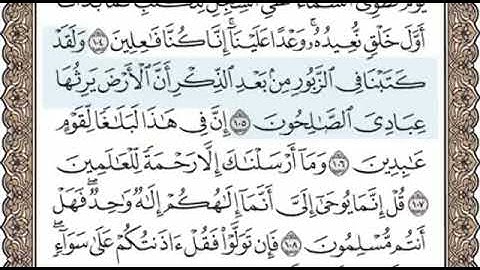 أَوَّلَ خَلْقٍ نُّعِيدُهُۥ ۚ وَعْدًا عَلَيْنَآ ۚ إِنَّا كُنَّا فَٰعِلِينَ ١٠٤ وَلَقَدْ
كَتَبْنَا فِى ٱلزَّبُورِ مِنۢ بَعْدِ ٱلذِّكْرِ أَنَّ ٱلْأَرْضَ يَرِثُهَا
عِبَادِىَ ٱلصَّٰلِحُونَ ١٠٥ إِنَّ فِى هَٰذَا لَبَلَٰغًا لِّقَوْمٍ
عَٰبِدِينَ ١٠٦ وَمَآ أَرْسَلْنَٰكَ إِلَّا رَحْمَةً لِّلْعَٰلَمِينَ
١٠٧ قُلْ إِنَّمَا يُوحَىٰٓ إِلَىَّ أَنَّمَآ إِلَٰهُكُمْ إِلَٰهٌ وَٰحِدٌ ۖ فَهَلْ
أَنتُم مُّسْلِمُونَ ١٠٨ فَإِن تَوَلَّوْا۟ فَقُلْ ءَاذَنتُكُمْ عَلَىٰ سَوَآءٍ ۖ